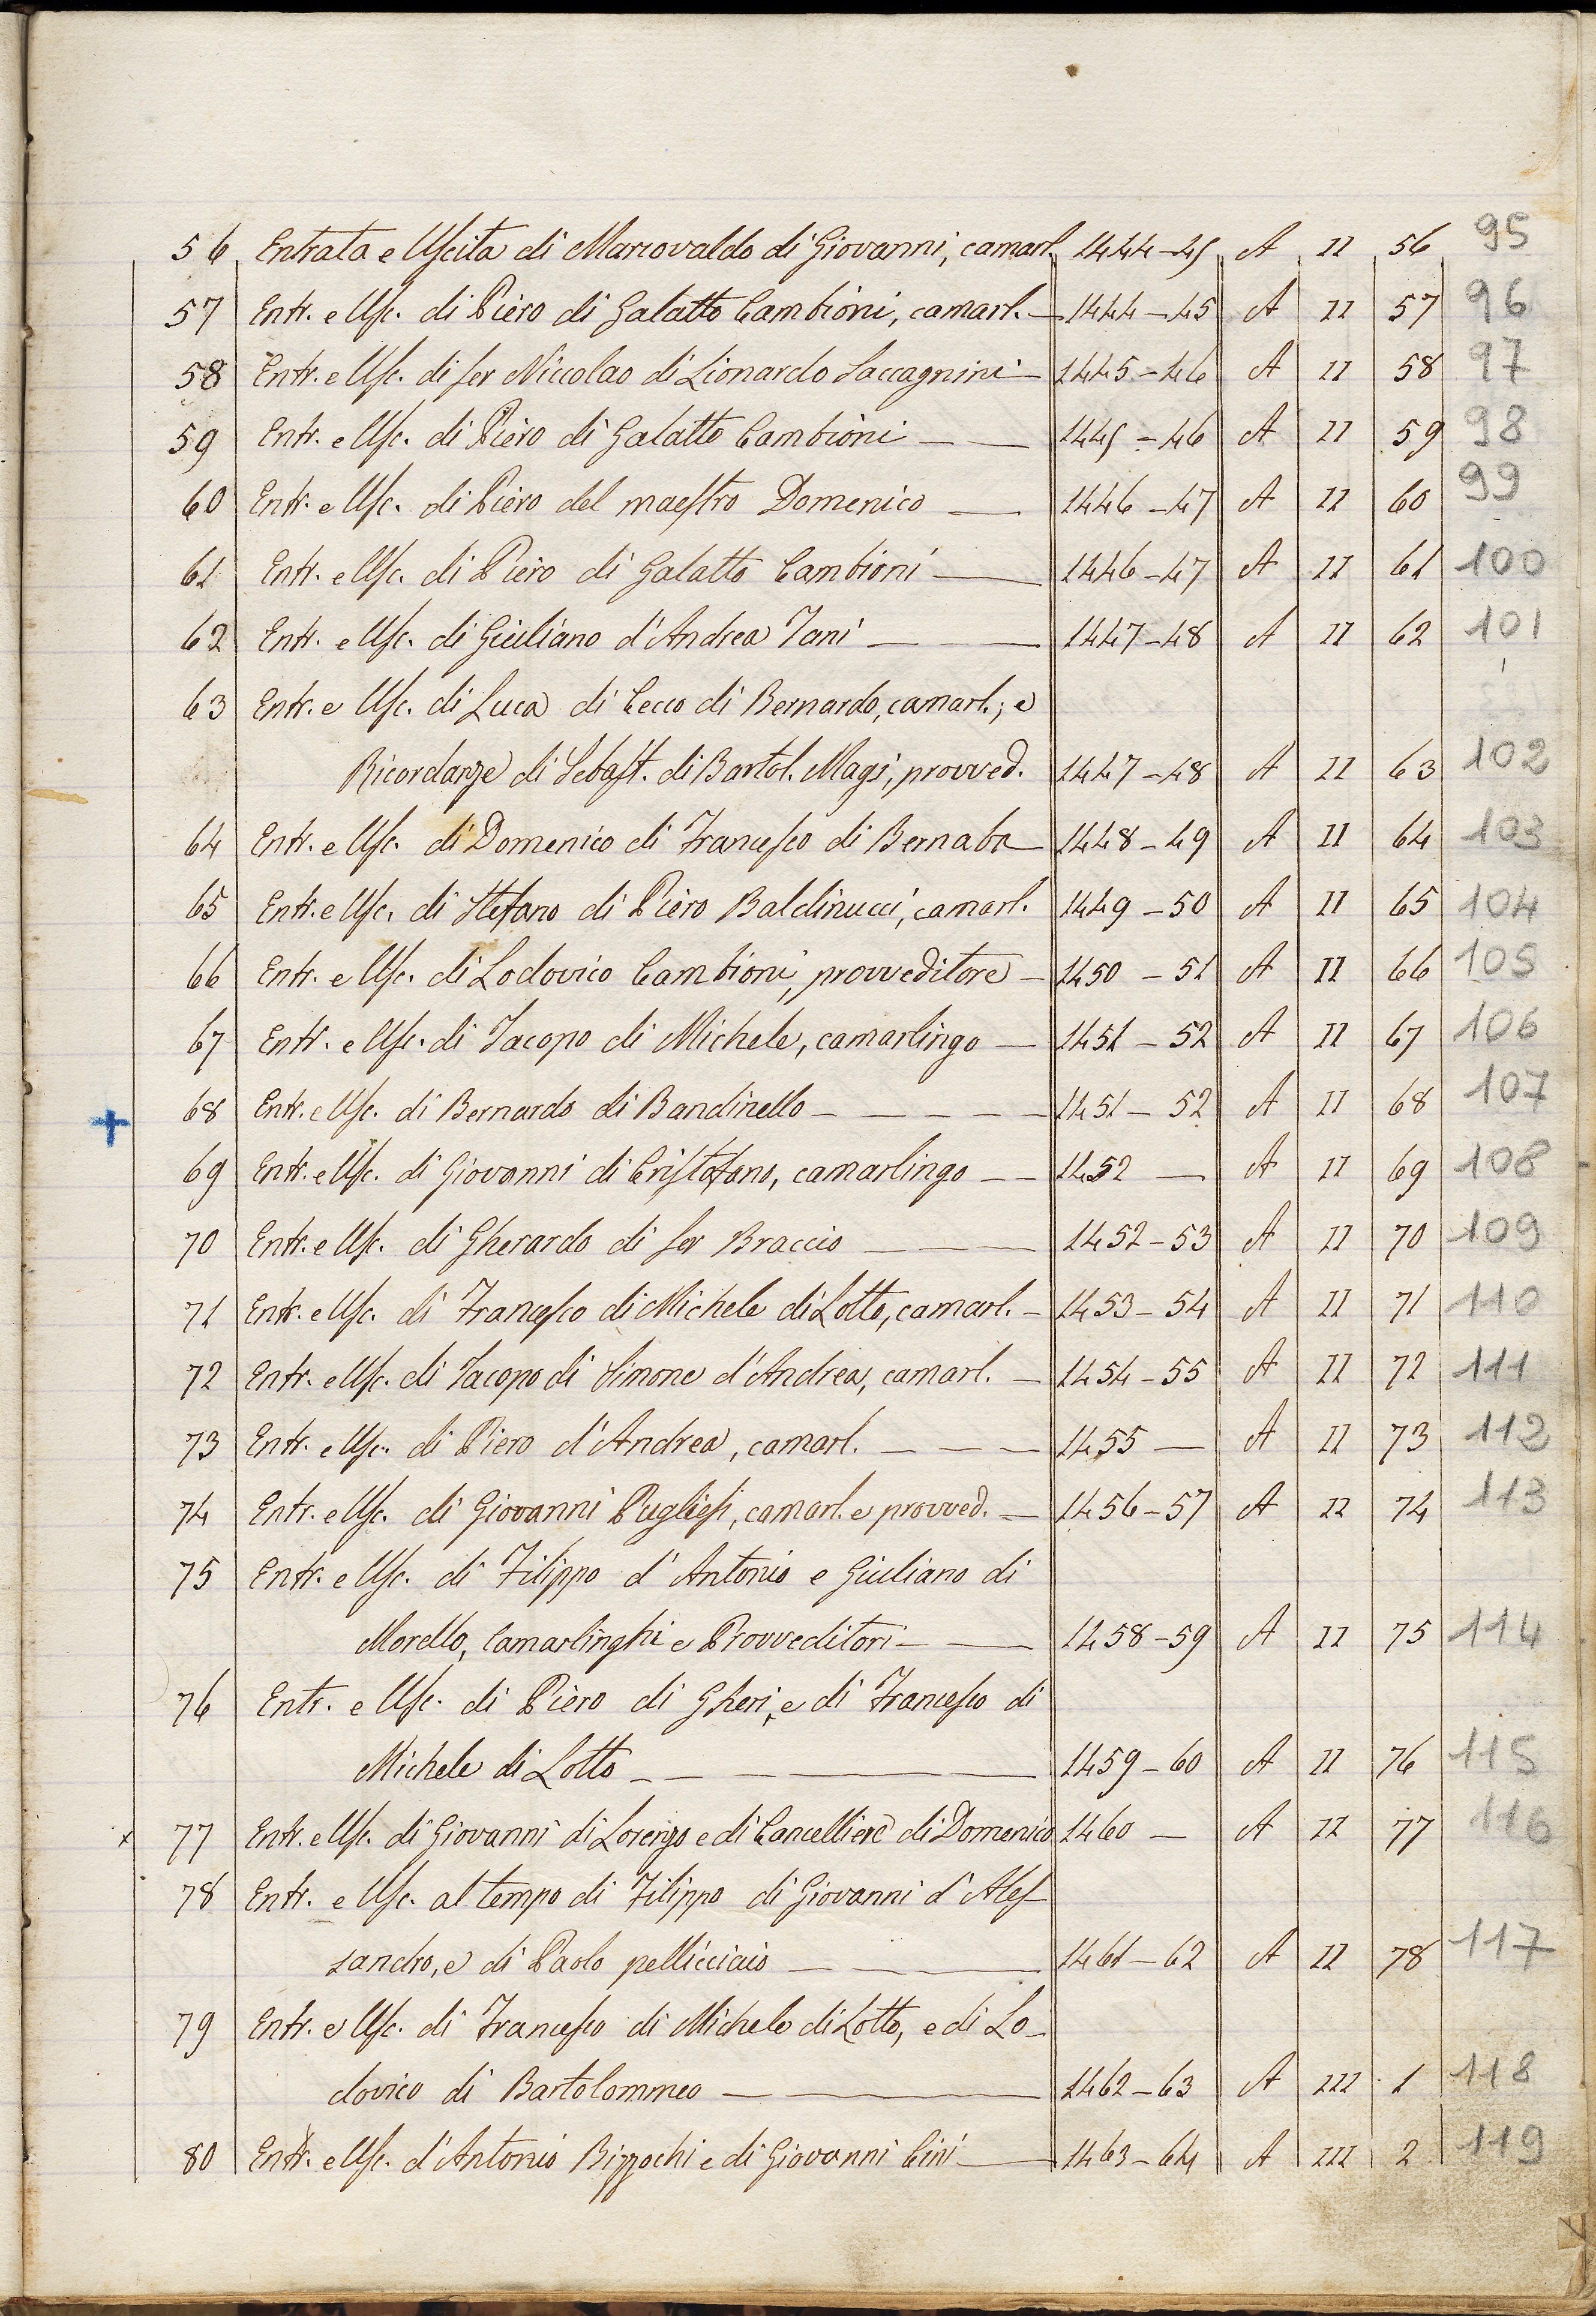 56 Entrata e Uscita di Marcovaldo di Giovanni, camarl. 1444-45 A II 56 95
57 Entr. e Usc. di Piero di Galatto Cambioni, camarl. — 1444-45 A II 57 96
58 Entr. e Usc. di ser Niccolao di Lionardo Saccagnini — 1445-46 A II 58 97
59 Entr. e Usc. di Piero di Galatto Cambioni — — 1445-46 A II 59 98
60 Entr. e Usc. di Piero del maestro Domenico — 1446-47 A II 60 99
61 Entr. e Usc. di Piero di Galatto Cambioni — 1446-47 A II 61 100
62 Entr. e Usc. di Giuliano d'Andrea Tani — — — 1447-48 A II 62 101
63 Entr. e Usc. di Luca di Cecco di Bernardo, camarl.; e
Ricordanze di Sebast. di Bartol. Magi, provved. 1447-48 A II 63 102
64 Entr. e Usc. di Domenico di Francesco di Bernaba — 1448-49 A II 64 103
65 Entr. e Usc. di Stefano di Piero Baldinucci, camarl. 1449-50 A II 65 104
66 Entr. e Usc. di Lodovico Cambioni, provveditore — 1450-51 A II 66 105
67 Entr. e Usc. di Jacopo di Michele, camarlingo — 1451-52 A II 67 106
+ 68 Entr. e Usc. di Bernardo di Bandinello — — — — — 1451-52 A II 68 107
69 Entr. e Usc. di Giovanni di Cristofano, camarlingo — — 1452 — A II 69 108
70 Entr. e Usc. di Gherardo di ser Braccio — — — 1452-53 A II 70 109
71 Entr. e Usc. di Francesco di Michele di Lotto, camarl. — 1453-54 A II 71 110
72 Entr. e Usc. di Jacopo di Simone d'Andrea, camarl. — 1454-55 A II 72 111
73 Entr. e Usc. di Piero d'Andrea, camarl. — — — 1455 — A II 73 112
74 Entr. e Usc. di Giovanni Pugliesi, camarl. e provved. — 1456-57 A II 74 113
75 Entr. e Usc. di Filippo d'Antonio e Giuliano di
Morello, Camarlinghi e Provveditori — — 1458-59 A II 75 114
76 Entr. e Usc. di Piero di Gheri, e di Francesco di
Michele di Lotto — — — — — 1459-60 A II 76 115
x 77 Entr. e Usc. di Giovanni di Lorenzo e di Cancelliere di Domenico 1460 — A II 77 116
78 Entr. e Usc. al tempo di Filippo di Giovanni d'Ales
sandro, e di Paolo pellicciaio — — — 1461-62 A II 78 117
79 Entr. e Usc. di Francesco di Michele di Lotto, e di Lo-
dovico di Bartolommeo — — 1462-63 A III 1 118
80 Entr. e Usc. d'Antonio Bizzochi e di Giovanni Cini — 1463-64 A III 2 119